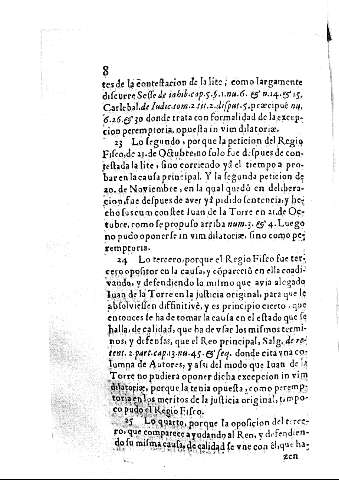 8
tes de la cõtestacion de la lite; como largamente
discurre Sesse de inhib. cap. 5. §. 1. nu. 6. & n. 14. & 15.
Carlebal. de Iudic. tom. 2. tit. 2. disput. 5. præcipuè nu.
6. 26. & 30 donde trata con formalidad de la excep-
cion peremptoria, opuesta in vim dilatoriæ.
23 Lo segundo, porque la peticion del Regio
Fisco, de 21. de Octubre, no solo fue despues de con-
testada la lite; sino corriendo yà el tiempo a pro-
bar en la causa principal. Y la segunda peticion de
20. de Noviembre, en la qual quedò en delibera-
cion, fue despues de aver yà pidido sentencia, y he-
cho su secum constet Iuan de la Torre en 21. de Oc-
tubre, como se propuso arriba num. 3. & 4. Luego
no pudo oponerse in vim dilatoriæ, sino como pe-
remptoria.
24 Lo tercero, porque el Regio Fisco fue ter-
cero opositor en la causa, y cõpareciò en ella coadi-
vando, y defendiendo la mismo que avia alegado
Iuan de la Torre en la justicia original, para que le
absolviessen difinitivè, y es principio cierto, que
entonces se ha de tomar la causa en el estado que se
halla, de calidad, que ha de vsar los mismos termi-
nos, y defensas, que el Reo principal, Salg. de re-
tent. 2. part. cap. 13. nu. 45. & seq. donde cita vna co-
lumna de Autores, y assi del modo que Iuan de la
Torre no pudiera oponer dicha excepcion in vim
dilatoriæ, porque la tenia opuesta, como peremp-
toria en los meritos de la justicia original, tampo-
co pudo el Regio Fisco.
25 Lo quarto, porque la oposicion del terce-
ro, que comparece ayudando al Reo, y defendien-
do su misma causa, de calidad se vne con èl, que ha-
zen